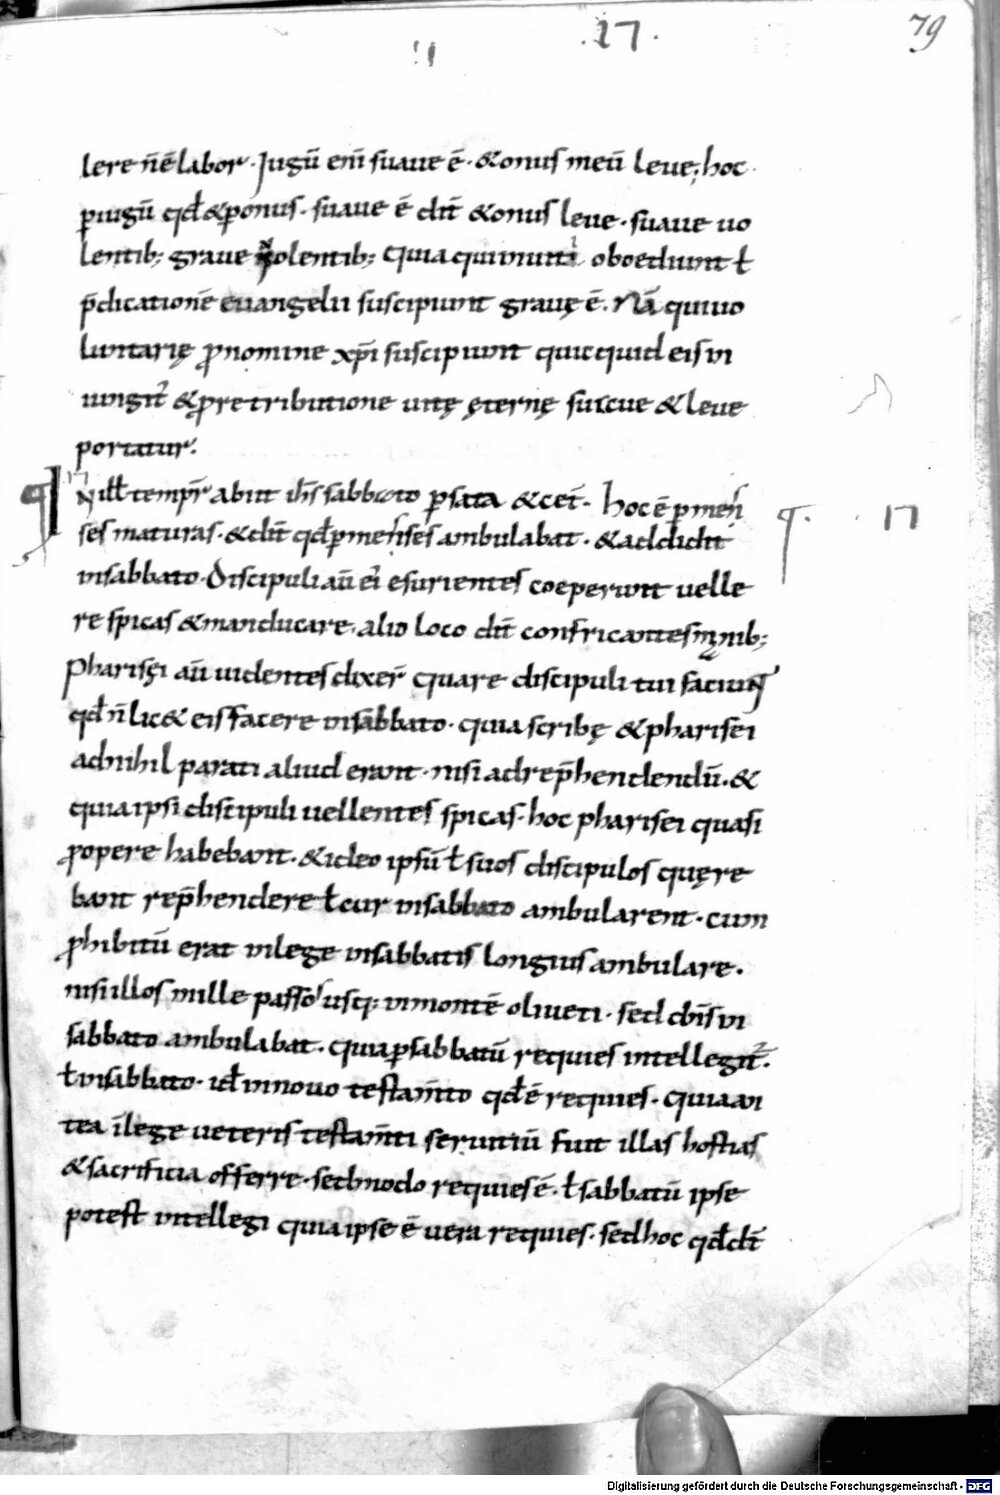 .17.
79
lere n̄ ē labor. Jugū eni᷅ suaue ē. & onus meū leue; hoc
p̱ iugū qd̄ & p̱ onus. suaue ē dic̄ & onus leue. suaue uo
lentib; graue nolentib; Quia qui inuiti oboediunt ł
p̄dicationē euangelii suscipiunt grauę ē. Nā qui uo
luntarię ꝓ nomine xp̄i suscipiunt quicquid eis in
iungit̄ & ꝓ retributione uitę ęternę suaue & leue
portatur.
N ill̄ temp̄r abiit ih̄s sabbato p̱ sata & cet̄. hoc ē p̱ mes
ses maturas. & dic̄ qd̄ p̱ messes ambulabat. & addidit
in sabbato. Discipuli aū ei᷅ esurientes coeperunt uelle
re spicas & manducare. alio loco dic̄ confricantes manib;
Pharisęi aū uidentes dixer̄ Quare discipuli tui faciunt
qd̄ n̄ lic& eis facere in sabbato. quia scribę & pharisei
ad nihil parati aliud erant. nisi ad rep̄hendendū. &
quia ipsi discipuli uellentes spicas. hoc pharisei quasi
ꝓ opere habebant. & ideo ipsū ł suos discipulos quęre
bant rep̄hendere ł cur in sabbato ambularent. cum
ꝓhibitū erat in lege in sabbatis longius ambulare.
nisi illos mille passos usq; in montē oliueti. sed dn̄s in
sabbato ambulabat. quia p̱ sabbatū requies intellegit̄.
ł in sabbato. id ē in nouo testam̄to qd̄ ē requies. quia an
tea in lege ueteris testam̄ti seruitiū fuit illas hostias
& sacrificia offerre. sed modo requies ē. ł sabbatū ipse
potest intellegi quia ipse ē uera requies. sed hoc qd̄ dic̄
17
Digitalisierung gefördert durch die Deutsche Forschungsgemeinschaft - DFG